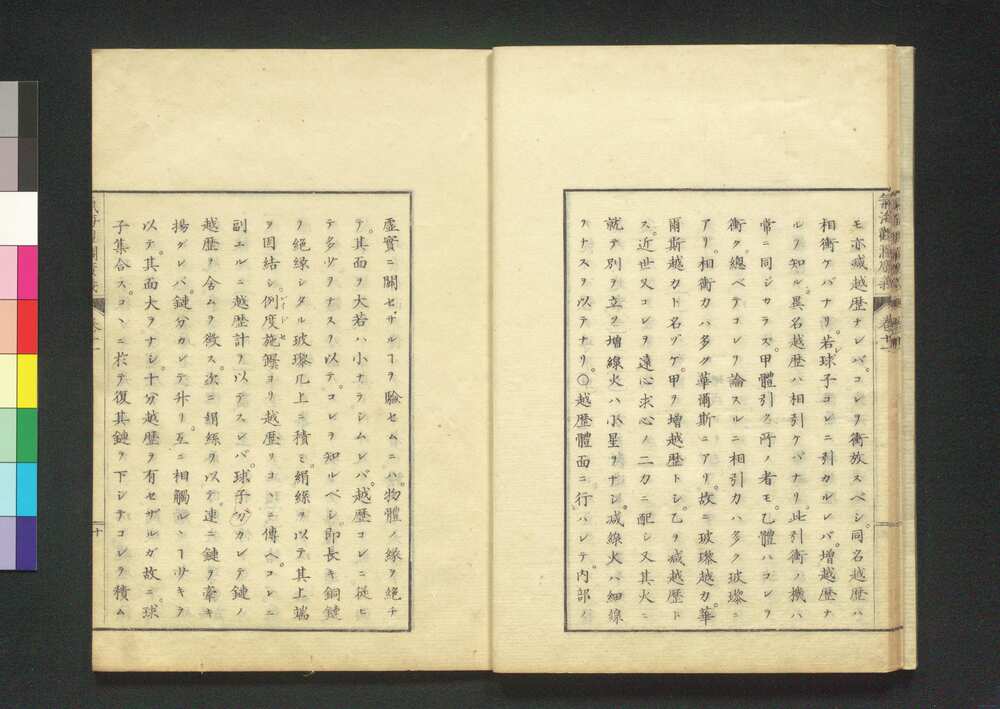 モ亦减越歴ナレバ。コレヲ衝放スベシ。同名越歴ハ
相衝ケバナリ。若球子コレニ引カルレバ。增越歴ナ
ルヲ知ル。異名越歴ハ相引ケバナリ。此引衝ノ機ハ
常ニ同ジカラズ。甲體引ク所ノ者モ。乙體ハコレヲ
衝ク。總ベテコレヲ論スルニ相引カハ多ク玻瓈ニ
アリ。相衝カハ多ク華爾斯ニアリ。故ニ玻瓈越カ。華
爾斯越カト名ヅケ。甲ヲ增越歴トシ。乙ヲ减越歴ト
ス。近世又コレヲ遠心求心ノ二力ニ配シ又其火ニ
就テ別ヲ立ツ。增線火ハ小星ヲナシ。减線火ハ細線
ヲナスヲ以テナリ。〇越歴體面ニ行ハレテ。内部ノ
虚實ニ關セザルヿヲ驗セムニハ。物體ノ縁ヲ絶チ
テ。其面ヲ大若ハ小ナラシムレバ。越歴コレニ從ヒ
テ多少ヲナスヲ以テ。コレヲ知ルベシ。即長キ銅鏈
ヲ絶縁シタル玻瓈几上ニ積ミ。絹絲ヲ以テ其上端
ヲ固結シ。例度施罎ヨリ越歴ヲコヽニ傳ヘ。コレニ
副エルニ越歴計ヲ以テスレバ。球子分カレテ鏈ノ
越歴ヲ含ムヲ徴ス。次ニ絹絲ヲ以テ。速ニ鏈ヲ牽キ
揚グレバ。鏈分カレテ升リ。互ニ相觸ルヽヿ少キヲ
以テ。其面大ヲナシ。十分越歴ヲ有セザルガ故ニ。球
子集合ス。コヽニ於テ復其鏈ヲ下シテコレヲ積ム
十